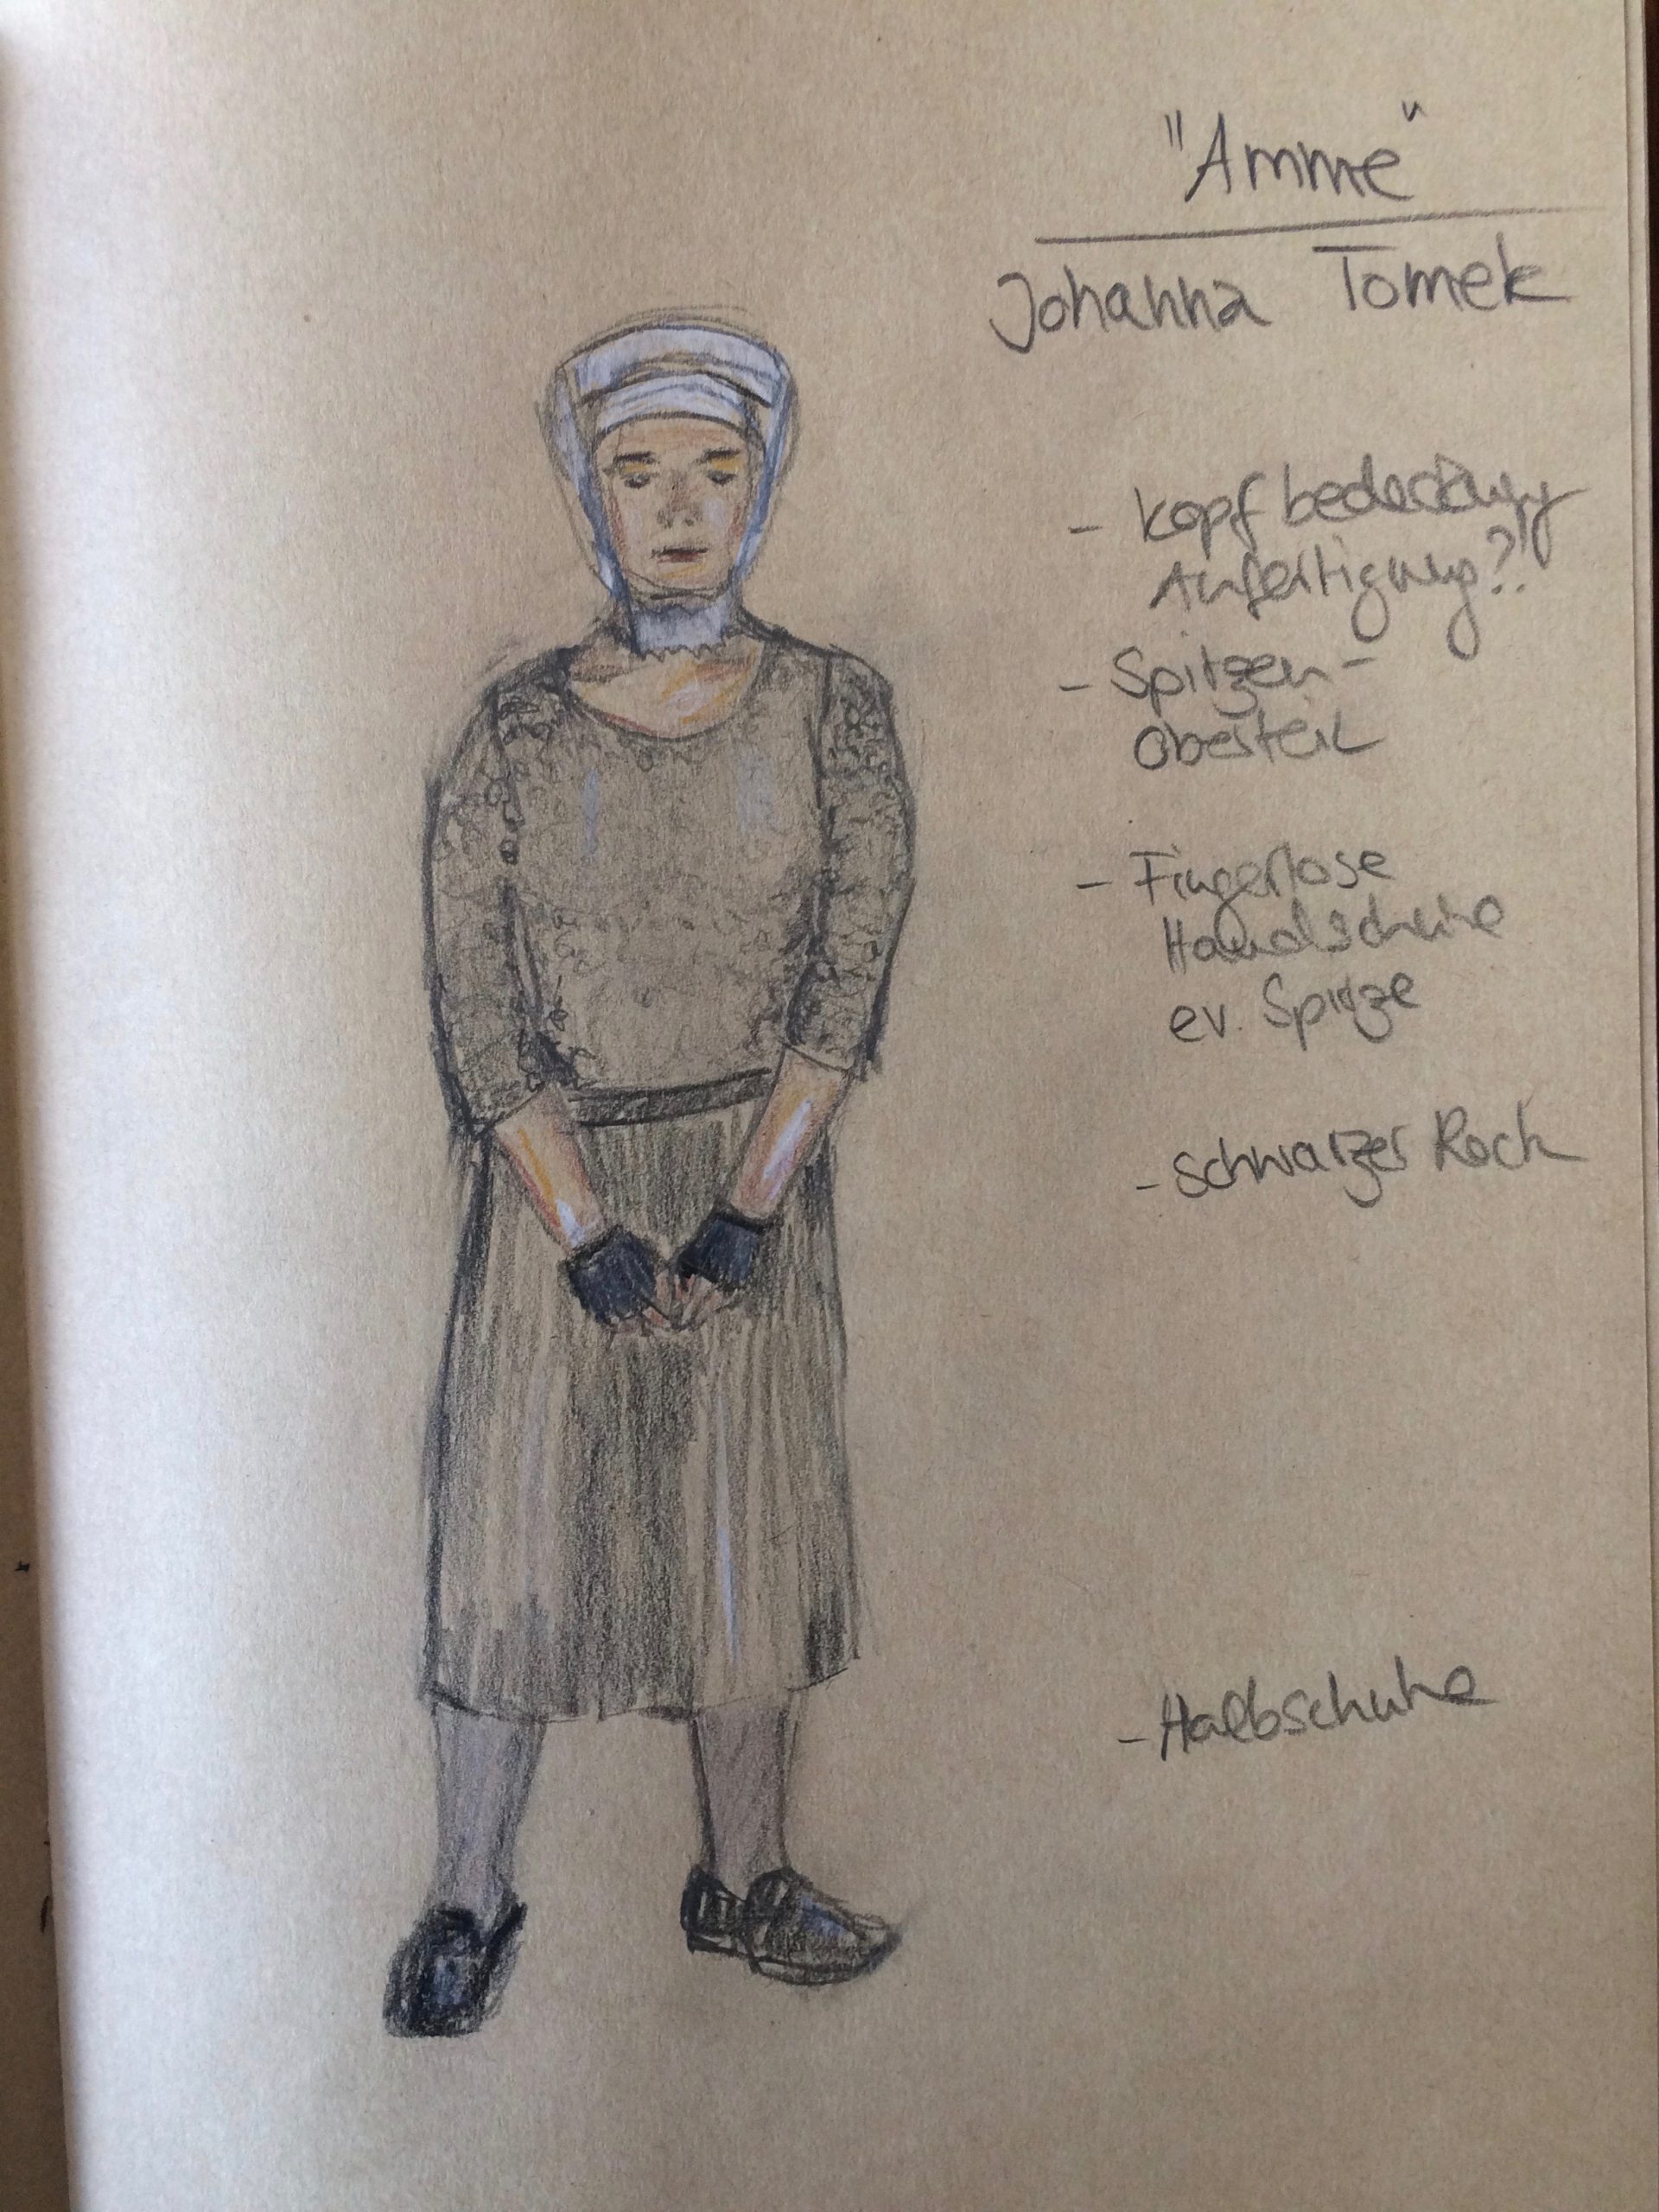 "Amme"
Johanna Tomek
- Kopfbedeckung
Anfertigung?!
- Spitzen-
oberteil
- Fingerlose
Handschuhe
ev. Spitze
- schwarzer Rock
- Halbschuhe